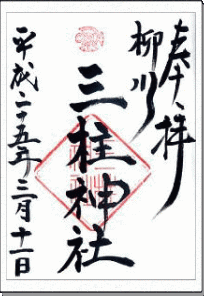 奉拝
柳川
三柱神社
平成二十五年三月十一日